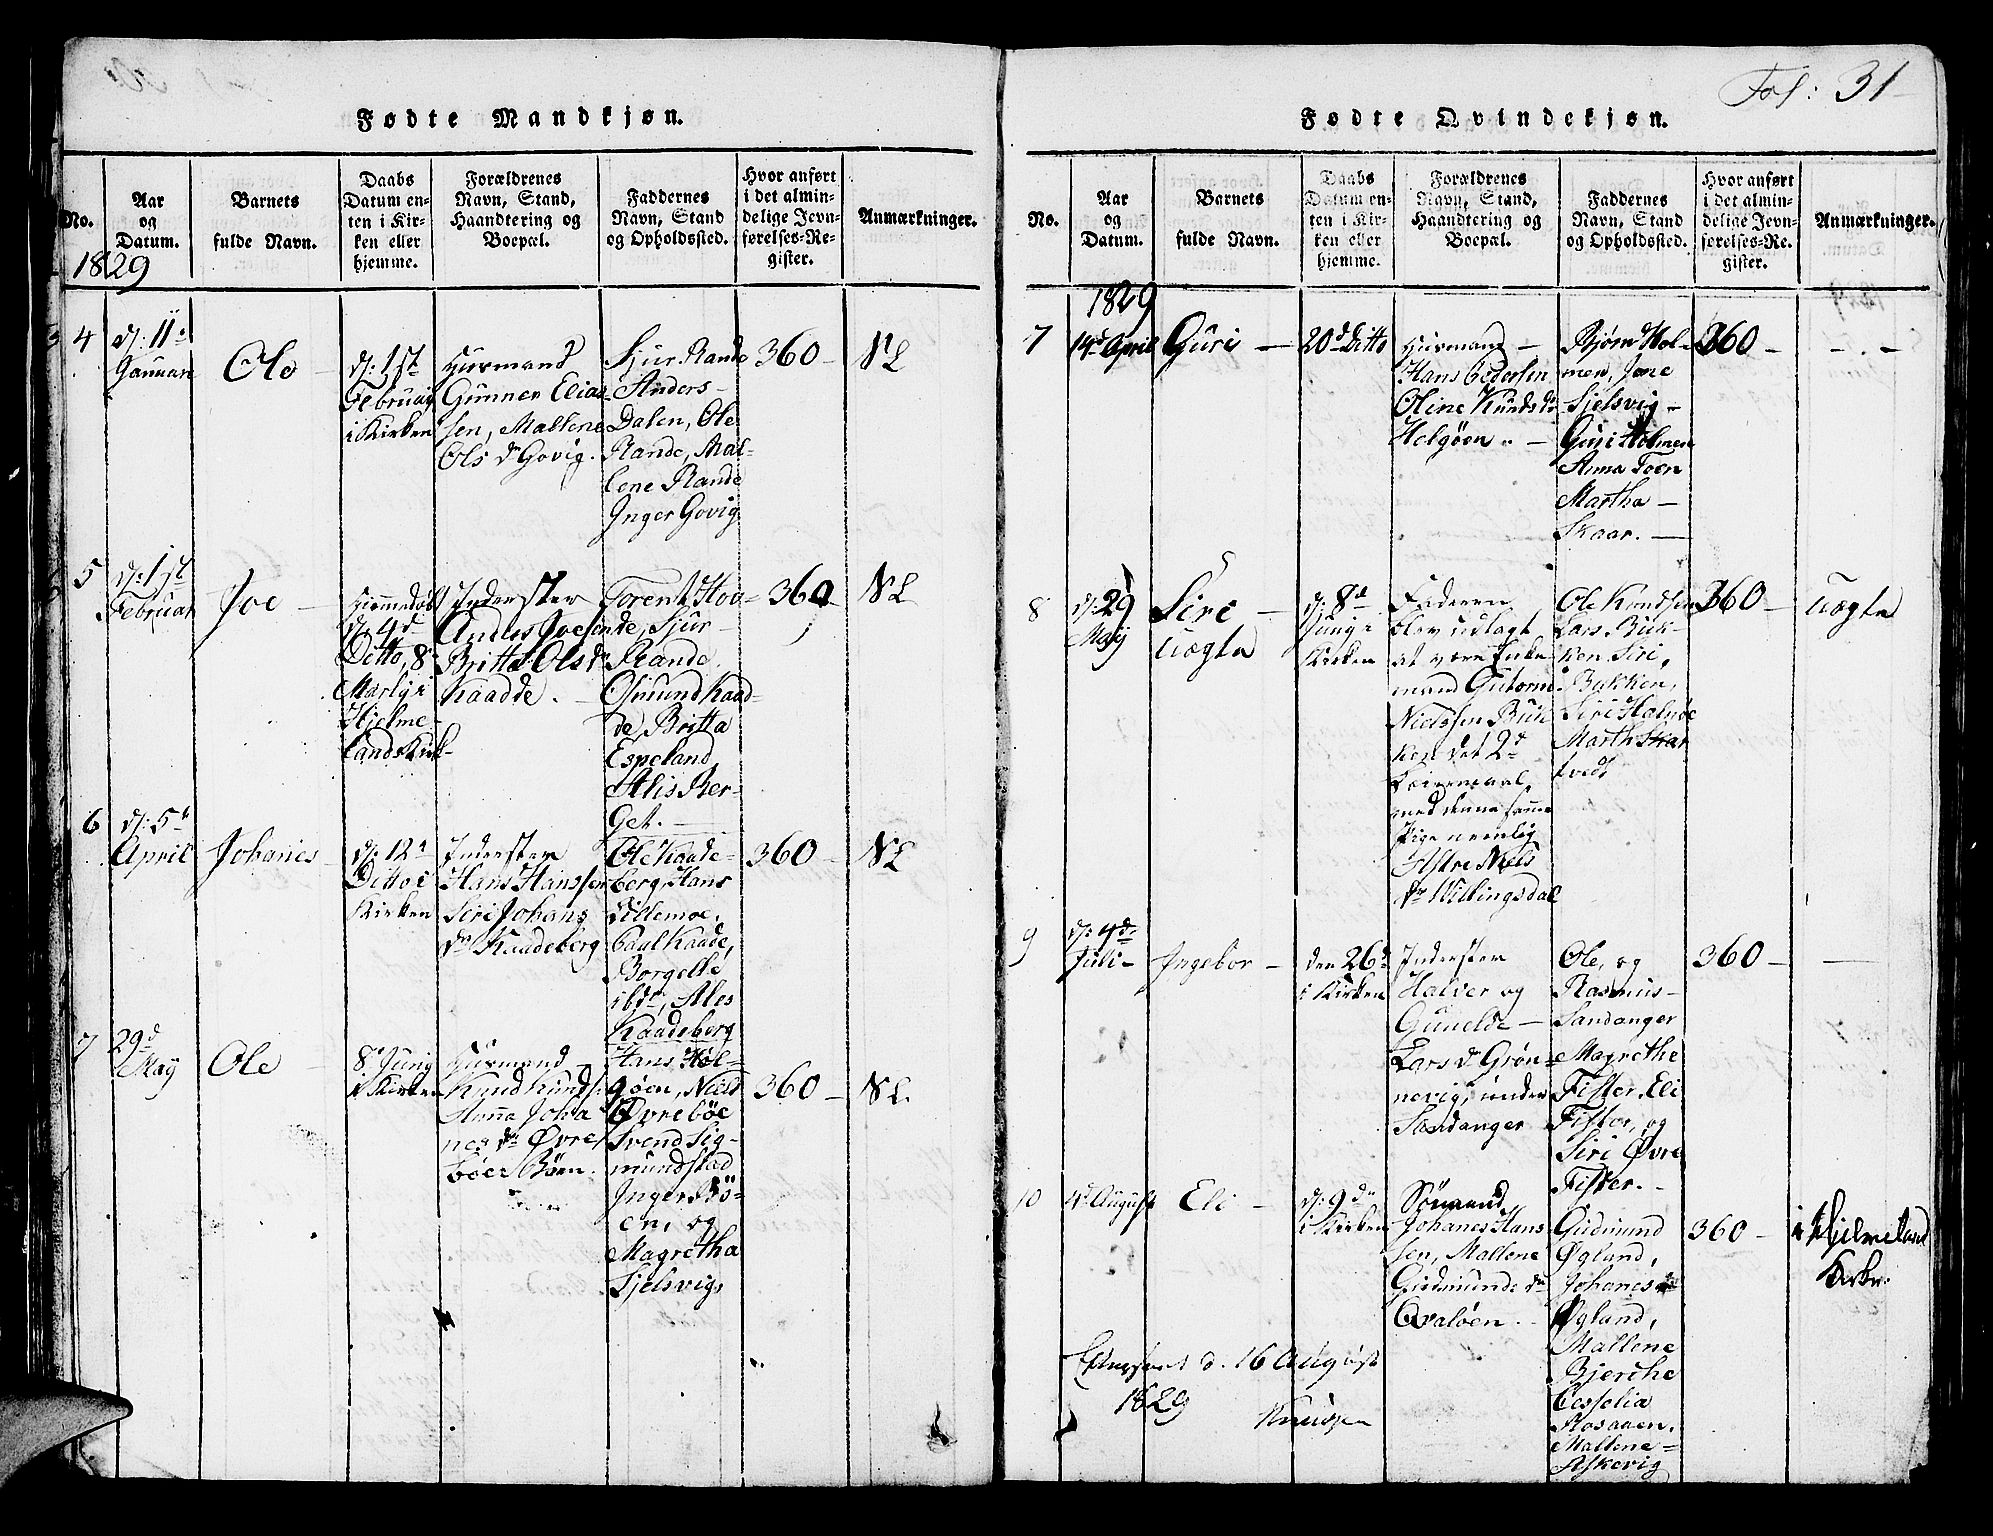 Fødte Mandkjøn.
No.
Aar
og
Datum.
Barnets
fulde Navn.
Daabs
Datum en-
ten i Kir-
ken eller
hjemme.
Forældrenes
Navn, Stand,
Haandtering og
Boepæl.
Faddernes
Navn, Stand
og Opholdssted.
Hvor anført
i det almin-
delige Jevn-
førelses-Re-
gister.
Anmærkninger.
1829
4
d: 11te
Januar
Ole
d: 1ste
Februar
i Kirken
Huusmand
Gunner Elias-
sen, Mallene
Ols dr Govig.
Sjur Rande
Anders -
Dalen, Ole
Rande, Mal-
lene Rande
Inger Govig
360 -
NL
5
d: 1ste
Februar
Joe
Hiemmedøbt
d: 4d
Ditto, 8
Martij i
Hjelme-
lands Kirk-
Inderster
Andes Joesen
Britta Ols dr
Kaadde.
Torent Hov-
de, Sjur -
Rande,
Osmund Kaad-
de, Britta
Espeland
Alis Ber-
get. -
360
NL
6
d: 5te
April
Johanes
d: 12te
Ditto i
Kirken
Inderster
Hans Hanssen
Siri Johans
dr Kaadeberg
Ole Kaade-
berg, Hans
Lillemoe,
Paul Kaade,
Borgelle
ibdm, Ales
Kaadeberg
360 -
NL
7
29d
May
Ole
8d Junij
i Kirken
Huusmand -
Knud Knuds:
Hanna Joha
nes dr Øvre
bøe Bøen.
Hans Høl-
gøen, Niels
Øvrebøe
Svend Sig-
mundstad
Inger Bö-
en, og
Magretha
Sjelsvig,
360 -
NL.
Fol: 31
Fødte Qvindekjøn.
No.
Aar
og
Datum.
Barnets
fulde Navn.
Daabs
Datum en-
ten i Kir-
ken eller
hjemme.
Forældrenes
Navn, Stand,
Haandtering og
Boepæl.
Faddernes
Navn, Stand
og Opholdssted.
Hvor anført
i det almin-
delige Jevn-
førelses-Re-
gister.
Anmærkninger.
1829
7
14d April
Guri -
20d Ditto
Huusmand -
Hans Pedersen
Oline Knuds dr
Helgøen -
Bjørn Hol-
men, Jone
Sjelsvig -
Guri Holmen
Anna Toen
Martha -
Skaar. -
360 -
- . -
8
d: 29
May
Siri -
uægte
d: 8d
Junij i
Kirken
Faderen
blev udlagt
at være Enke
mand Gutorm
Nielssen Buk
ken det 2d
Leiermaal
med denne samme
Pige nemlig
Astre Niels
dr Villingsdal
Ole Knudsen
Lars Buk-
ken, Siri
Bukken,
Siri Halnöe
Marth Skar
tvedt
360 -
uægte
9
d: 4d
Juli -
Ingebor -
den 26d
i Kirken
Inderster
Halver og
Gunelde -
Lars dr Grøn-
nevig, under
Sandanger
Ole, og
Rasmus -
Sandanger
Magrethe
Fister, Eli
Fister, og
Siri Øvre
Fister. -
360 -
-
10
4d August
Eli -
d: 9de
i Kirken
Sömand,
Johanes Hans
sen, Mallene
Gudmunds dr
Qvaløen.
Gudmund
Øgland,
Johanes
Øgland,
Mallene
Bjerche
Cesselia
Aosaaen,
Mallene -
Askevig
360 -
i Hjelmeland
Kirke.
d. 16 August
1829
Knudsen